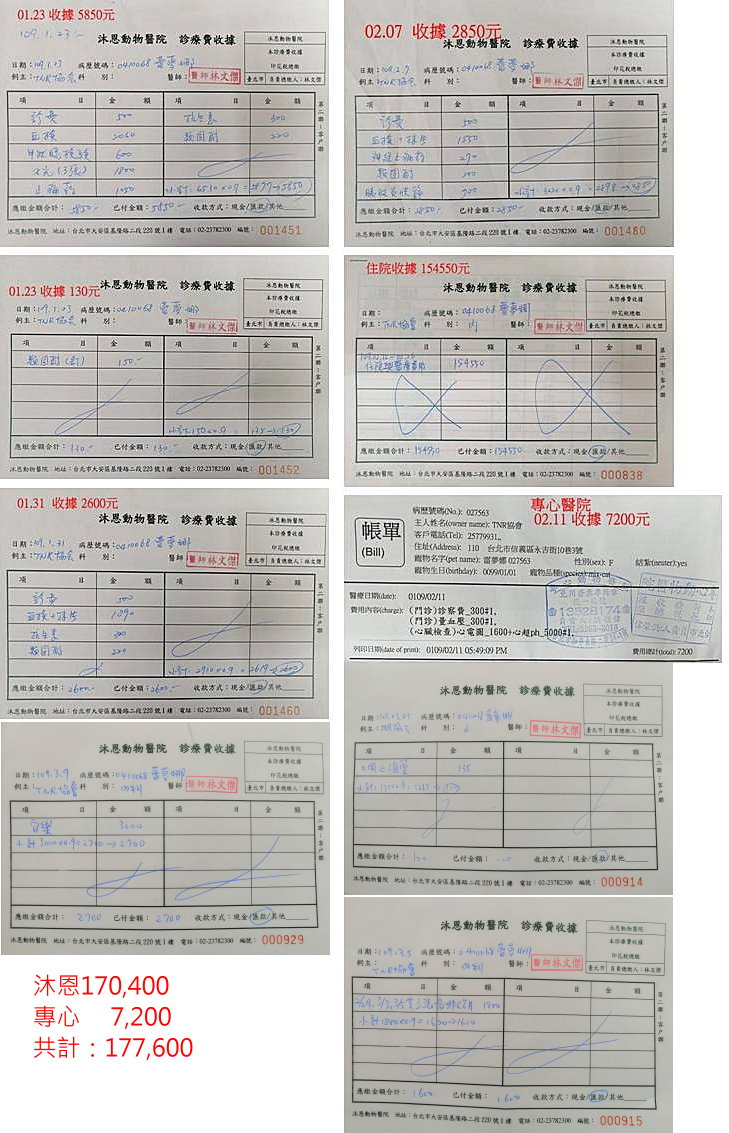 01.23 收據 5850元
109.1.23
沐恩動物醫院 診療費收據
沐恩動物醫院
本診療費收據
印花稅總繳
臺北市 負責總繳人：林文傑
日期：109.1.23 病歷號碼：0410068 雷夢娜
飼主：TNR協會 科 別： 醫師：醫師林文傑
項 目 金 額 項 目 金 額
診費 500 抗生素 300
血檢 2060 類固醇 220
600
X光(3張) 1800
止痛藥 1050 小計：6510×0.9=5877→5850
應繳金額合計：5850 已付金額：5850 收款方式：現金/匯款/其他
沐恩動物醫院 地址：台北市大安區基隆路二段220號1樓 電話：02-23782300 編號：001451
第二聯：客戶聯
02.07 收據 2850元
沐恩動物醫院 診療費收據
沐恩動物醫院
本診療費收據
印花稅總繳
臺北市 負責總繳人：林文傑
日期：109.2.7 病歷號碼：0410068 雷夢娜
飼主：TNR協會 科 別： 醫師：醫師林文傑
項 目 金 額 項 目 金 額
診費 500
1550
270
類固醇 200
小計：3220×0.9=2898→2850
應繳金額合計：2850 已付金額：2850 收款方式：現金/匯款/其他
沐恩動物醫院 地址：台北市大安區基隆路二段220號1樓 電話：02-23782300 編號：001480
第二聯：客戶聯
01.23 收據 130元
沐恩動物醫院 診療費收據
沐恩動物醫院
本診療費收據
印花稅總繳
臺北市 負責總繳人：林文傑
日期：109.1.23 病歷號碼：0410068 雷夢娜
飼主：TNR協會 科 別： 醫師：醫師林文傑
項 目 金 額 項 目 金 額
類固醇 150
小計：150×0.9=135→130
應繳金額合計：130 已付金額：130 收款方式：現金/匯款/其他
沐恩動物醫院 地址：台北市大安區基隆路二段220號1樓 電話：02-23782300 編號：001452
第二聯：客戶聯
住院收據 154550元
沐恩動物醫院 診療費收據
沐恩動物醫院
本診療費收據
印花稅總繳
臺北市 負責總繳人：林文傑
日期： 病歷號碼：0410068 雷夢娜
飼主：TNR協會 科 別：內 醫師：醫師林文傑
項 目 金 額 項 目 金 額
住院與醫療費用 154550
應繳金額合計：154550 已付金額：154550 收款方式：現金/匯款/其他
沐恩動物醫院 地址：台北市大安區基隆路二段220號1樓 電話：02-23782300 編號：000838
第二聯：客戶聯
01.31 收據 2600元
沐恩動物醫院 診療費收據
沐恩動物醫院
本診療費收據
印花稅總繳
臺北市 負責總繳人：林文傑
日期：109.1.31 病歷號碼：0410068 雷夢娜
飼主：TNR協會 科 別： 醫師：醫師林文傑
項 目 金 額 項 目 金 額
診費 500
1890
抗生素 300
類固醇 220
小計：2910×0.9=2619→2600
應繳金額合計：2600 已付金額：2600 收款方式：現金/匯款/其他
沐恩動物醫院 地址：台北市大安區基隆路二段220號1樓 電話：02-23782300 編號：001460
第二聯：客戶聯
專心醫院
02.11 收據 7200元
帳單
(Bill)
病歷號碼(No.): 027563
主人姓名(owner name): TNR協會
客戶電話(Tel): 25779931,
住址(Address): 110 台北市信義區永吉街10巷3號
寵物名字(pet name): 雷夢娜 027563 性別(sex): F 結紮(neuter):yes
寵物生日(birthday): 0099/01/01 寵物品種(species):mix-cat
醫療日期(date): 0109/02/11
費用內容(charge): (門診)診察費_300#1,
(門診)量血壓_300#1,
(心臟檢查)心電圖_1600+心超ph_5000#1,
列印日期(date of print): 0109/02/11 05:49:09 PM 費用總計(total): 7200
沐恩動物醫院 診療費收據
沐恩動物醫院
本診療費收據
印花稅總繳
臺北市 負責總繳人：林文傑
日期：109.3.9 病歷號碼：0410068 雷夢娜
飼主：TNR協會 科 別：內科 醫師：醫師林文傑
項 目 金 額 項 目 金 額
3000
小計 3000×0.9=2700→2700
應繳金額合計：2700 已付金額：2700 收款方式：現金/匯款/其他
沐恩動物醫院 地址：台北市大安區基隆路二段220號1樓 電話：02-23782300 編號：000929
第二聯：客戶聯
沐恩動物醫院 診療費收據
沐恩動物醫院
本診療費收據
印花稅總繳
臺北市 負責總繳人：林文傑
日期： 病歷號碼： 雷夢娜
飼主：TNR協會 科 別： 醫師：醫師林文傑
項 目 金 額 項 目 金 額
135
應繳金額合計： 已付金額： 收款方式：現金/匯款/其他
沐恩動物醫院 地址：台北市大安區基隆路二段220號1樓 電話：02-23782300 編號：000914
第二聯：客戶聯
沐恩動物醫院 診療費收據
沐恩動物醫院
本診療費收據
印花稅總繳
臺北市 負責總繳人：林文傑
日期：109.3.5 病歷號碼：0410068 雷夢娜
飼主：TNR協會 科 別：內科 醫師：醫師林文傑
項 目 金 額 項 目 金 額
1800
小計 1800×0.9=1620→1600
應繳金額合計：1600 已付金額：1600 收款方式：現金/匯款/其他
沐恩動物醫院 地址：台北市大安區基隆路二段220號1樓 電話：02-23782300 編號：000915
第二聯：客戶聯
沐恩170,400
專心 7,200
共計：177,600